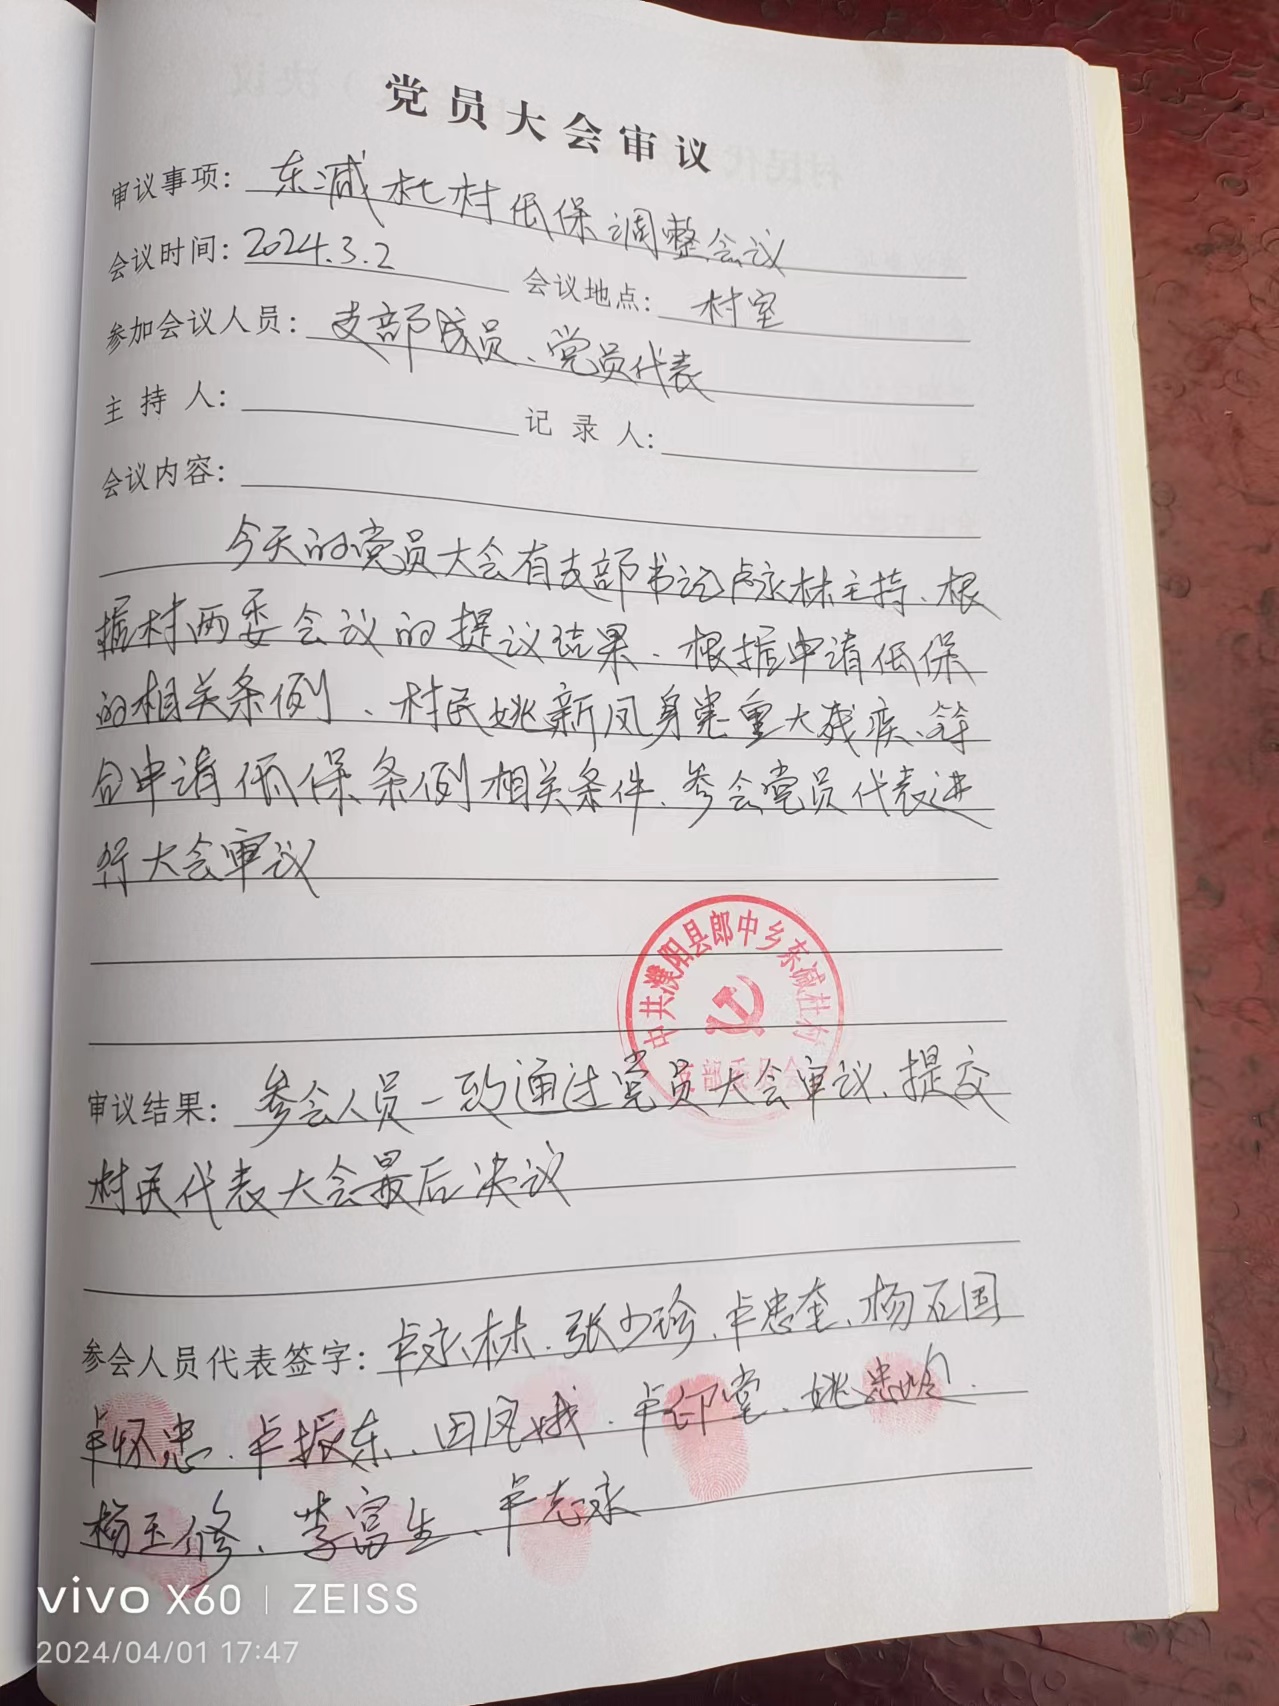 党员大会审议
审议事项：东减杜村低保调整会议
会议时间：2024.3.2 会议地点：村室
参加会议人员：支部成员、党员代表
主持人： 记录人：
会议内容：
今天的党员大会有支部书记卢永林主持、根
据村两委会议的提议结果、根据申请低保
的相关条例、村民姚新凤身患重大残疾、符
合申请低保条例相关条件、参会党员代表进
行大会审议
中共濮阳县郎中乡东减杜村
支部委员会
审议结果：参会人员一致通过党员大会审议、提交
村民代表大会最后决议
参会人员代表签字：卢永林、张少珍、卢忠奎、杨石国
卢怀忠、卢振东、田凤娥、卢印堂、姚忠
杨玉修、李富生、卢志永
vivo X60 | ZEISS
2024/04/01 17:47